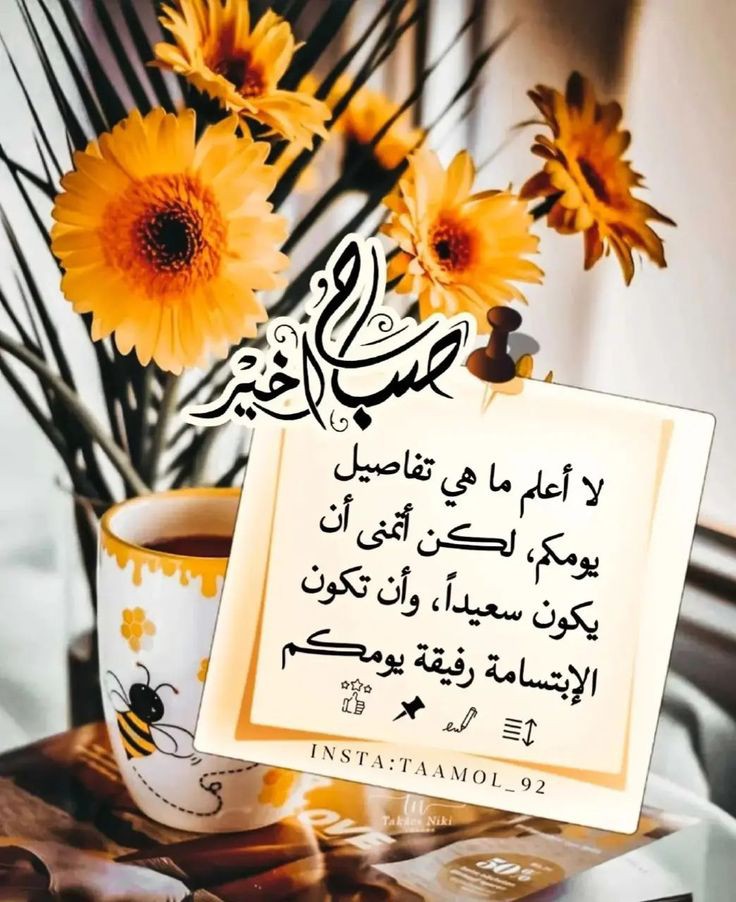 صباح الخير
لا أعلم ما هي تفاصيل
يومكم، لكن أتمنى أن
يكون سعيداً، وأن تكون
الإبتسامة رفيقة يومكم
INSTA:TAAMOL_92
Takács Niki
LOVE
50%